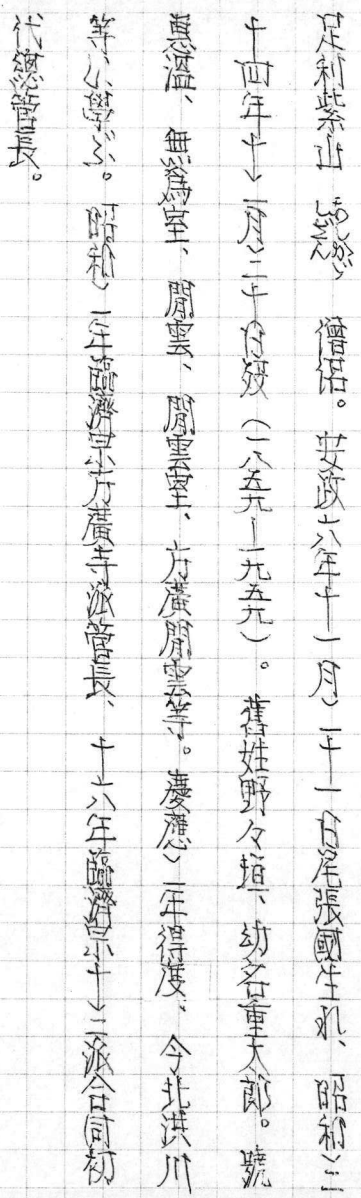 足利紫山 あしかが しざん 僧侶。安政六年十一月二十一日尾張國生れ、昭和三
十四年十二月三十日歿(一八五九―一九五九)。舊姓野々垣、幼名重太郎。號
惠溫、無爲室、閒雲、閒雲室、方廣閒雲等。慶應二年得度、今北洪川
等に學ぶ。昭和二年臨濟宗方廣寺派管長、十六年臨濟宗十三派合同初
代總管長。